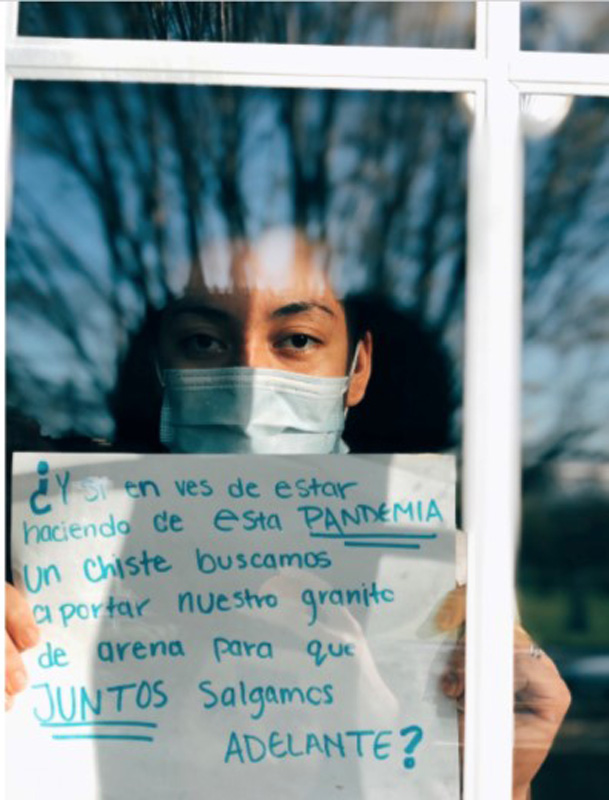 ¿Y si en ves de estar
haciendo de esta PANDEMIA
un chiste buscamos
aportar nuestro granito
de arena para que
JUNTOS Salgamos
ADELANTE?